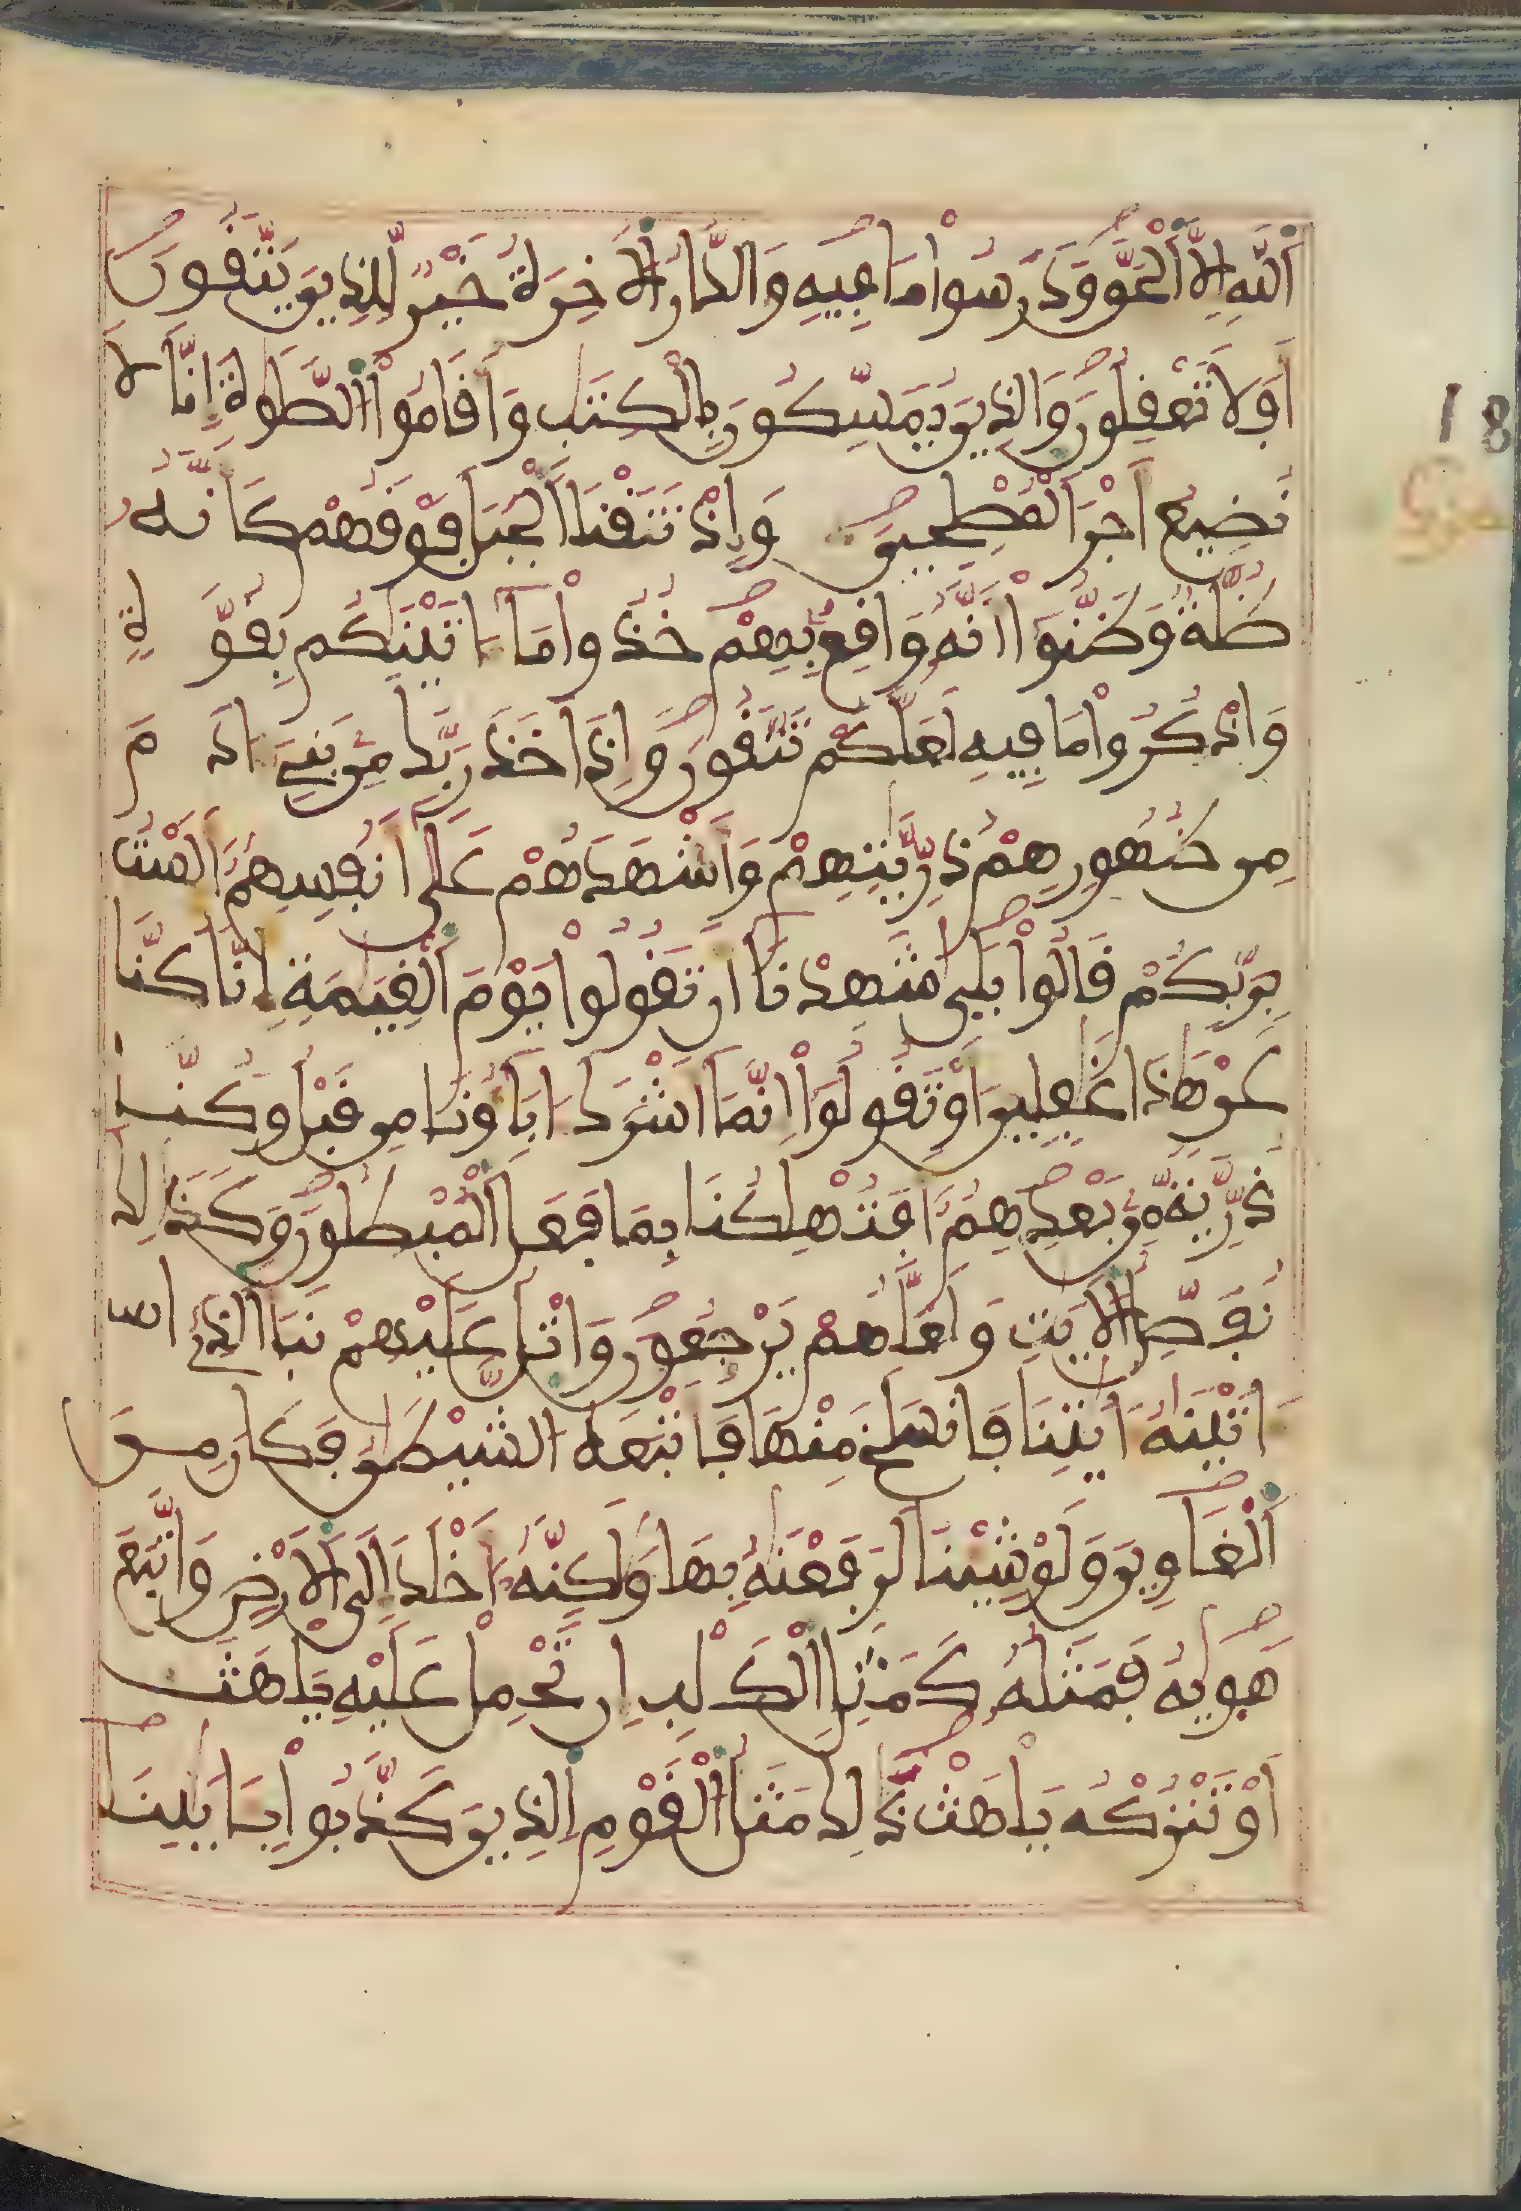 اَ۬للَّهِ إِلَّا اَ۬لْحَقَّ وَدَرَسُواْ مَا فِيهِ وَالدَّارُ اُ۬لَاخِرَةُ خَيْرٌ لِّلذِينَ يَتَّقُونَ
أَفَلَا تَعْقِلُونَ وَالذِينَ يُمَسِّكُونَ بِالْكِتَٰبِ وَأَقَامُواْ اُ۬لصَّلَوٰةَ إِنَّا لَا
نُضِيعُ أَجْرَ اَ۬لْمُصْلِحِينَ وَإِذْ نَتَقْنَا اَ۬لْجَبَلَ فَوْقَهُمْ كَأَنَّهُۥ
ظُلَّةٌ وَظَنُّواْ أَنَّهُۥ وَاقِعٌۢ بِهِمْ خُذُواْ مَا ءَاتَيْنَٰكُم بِقُوَّةٍ
وَاذْكُرُواْ مَا فِيهِ لَعَلَّكُمْ تَتَّقُونَ وَإِذَ اَخَذَ رَبُّكَ مِنۢ بَنِےٓ ءَادَمَ
مِن ظُهُورِهِمْ ذُرِّيَّٰتِهِمْ وَأَشْهَدَهُمْ عَلَىٰٓ أَنفُسِهِمُۥٓ أَلَسْتُ
بِرَبِّكُمْ قَالُواْ بَلَىٰ شَهِدْنَآ أَن تَقُولُواْ يَوْمَ اَ۬لْقِيَٰمَةِ إِنَّا كُنَّا
عَنْ هَٰذَا غَٰفِلِينَ أَوْ تَقُولُوٓاْ إِنَّمَآ أَشْرَكَ ءَابَآؤُنَا مِن قَبْلُ وَكُنَّا
ذُرِّيَّةً مِّنۢ بَعْدِهِمُۥٓ أَفَتُهْلِكُنَا بِمَا فَعَلَ اَ۬لْمُبْطِلُونَ وَكَذَٰلِكَ
نُفَصِّلُ اُ۬لَايَٰتِ وَلَعَلَّهُمْ يَرْجِعُونَ وَاتْلُ عَلَيْهِمْ نَبَأَ اَ۬لذِےٓ ا
اتَيْنَٰهُ ءَايَٰتِنَا فَانسَلَخَ مِنْهَا فَأَتْبَعَهُ اُ۬لشَّيْطَٰنُ فَكَانَ مِنَ
اَ۬لْغَاوِينَ وَلَوْ شِيْنَا لَرَفَعْنَٰهُ بِهَا وَلَٰكِنَّهُۥٓ أَخْلَدَ إِلَى اَ۬لَارْضِ وَاتَّبَعَ
هَوَىٰهُ فَمَثَلُهُۥ كَمَثَلِ اِ۬لْكَلْبِ إِن تَحْمِلْ عَلَيْهِ يَلْهَثَ
اَوْ تَتْرُكْهُ يَلْهَث ذَّٰلِكَ مَثَلُ اُ۬لْقَوْمِ اِ۬لذِينَ كَذَّبُواْ بِـَٔايَٰتِنَا
18
حزب